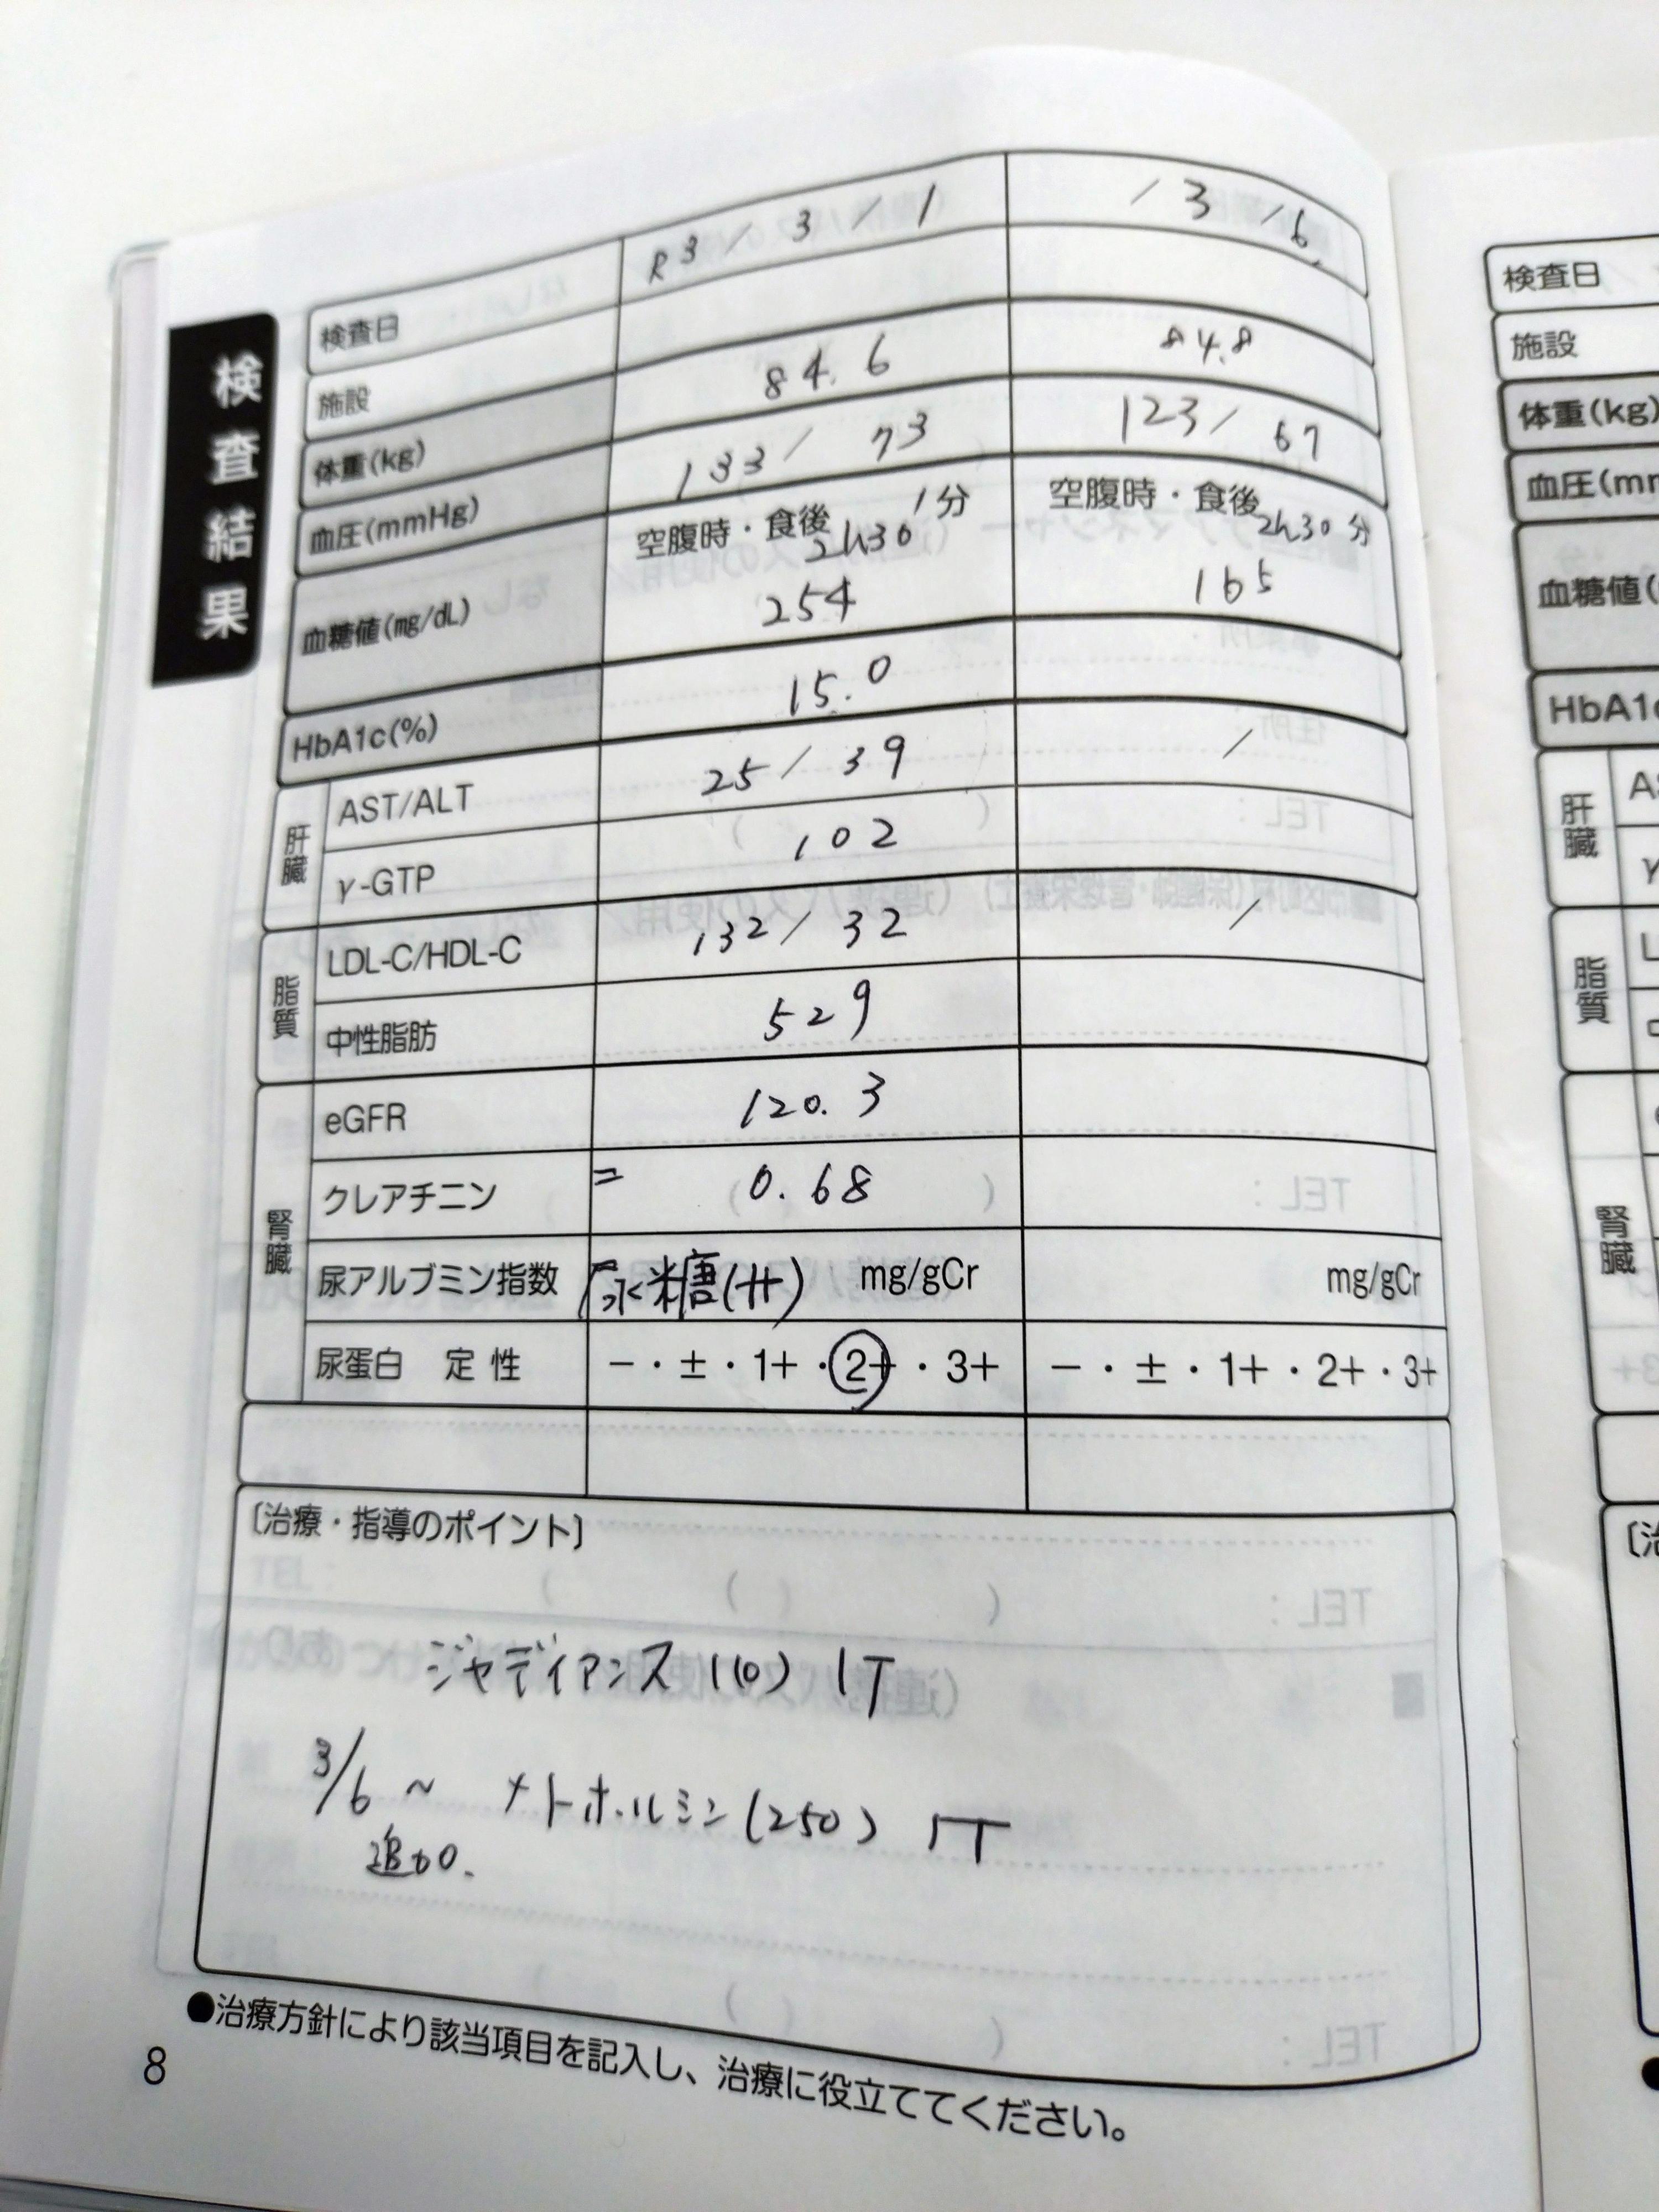 検査結果
検査日 R3/3/1 /3/6.
施設
体重(kg) 84.6 84.8
血圧(mmHg) 133/73 123/67
血糖値(mg/dL) 空腹時・食後 2h30 1分 空腹時・食後 2h30分
254 165
HbA1c(%) 15.0
肝臓 AST/ALT 25/39 /
γ-GTP 102
脂質 LDL-C/HDL-C 132/32 /
中性脂肪 529
腎臓 eGFR 120.3
クレアチニン = 0.68
尿アルブミン指数 尿糖(++) mg/gCr mg/gCr
尿蛋白 定性 −・±・1+・2+・3+ −・±・1+・2+・3+
〔治療・指導のポイント〕
ジャディアンス(10) 1T
3/6〜 メトホルミン(250) 1T
追加.
●治療方針により該当項目を記入し、治療に役立ててください。
8
検査日
施設
体重(kg)
血圧(mm
血糖値(
HbA1c
肝臓
脂質
腎臓
〔治